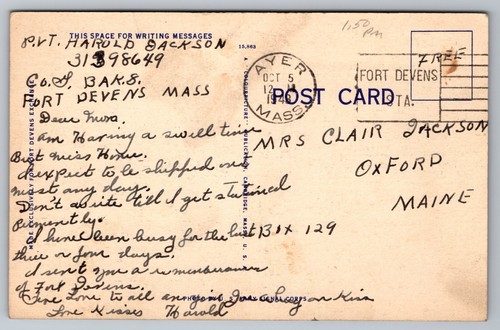 THIS SPACE FOR WRITING MESSAGES
PVT. HAROLD JACKSON
31398649
CO. BAKS.
FORT DEVENS MASS
Dear Mom.
am Having a swell time
But miss Home.
I expect to be shipped
most any day.
Don't write till I get stationed
I have been busy for the last
three or four days.
I sent you a
of Fort Devens.
Love to all
Love Kisses Harold
1:50 PM
13,865
AYER
OCT 5
12
MASS.
FORT DEVENS
STA.
FREE
POST CARD
MRS CLAIR JACKSON
OXFORD
MAINE
BOX 129
MADE EXCLUSIVELY FOR FORT DEVENS EXCHANGE
CAMBRIDGE, MASS., U. S.
SIGNAL CORPS